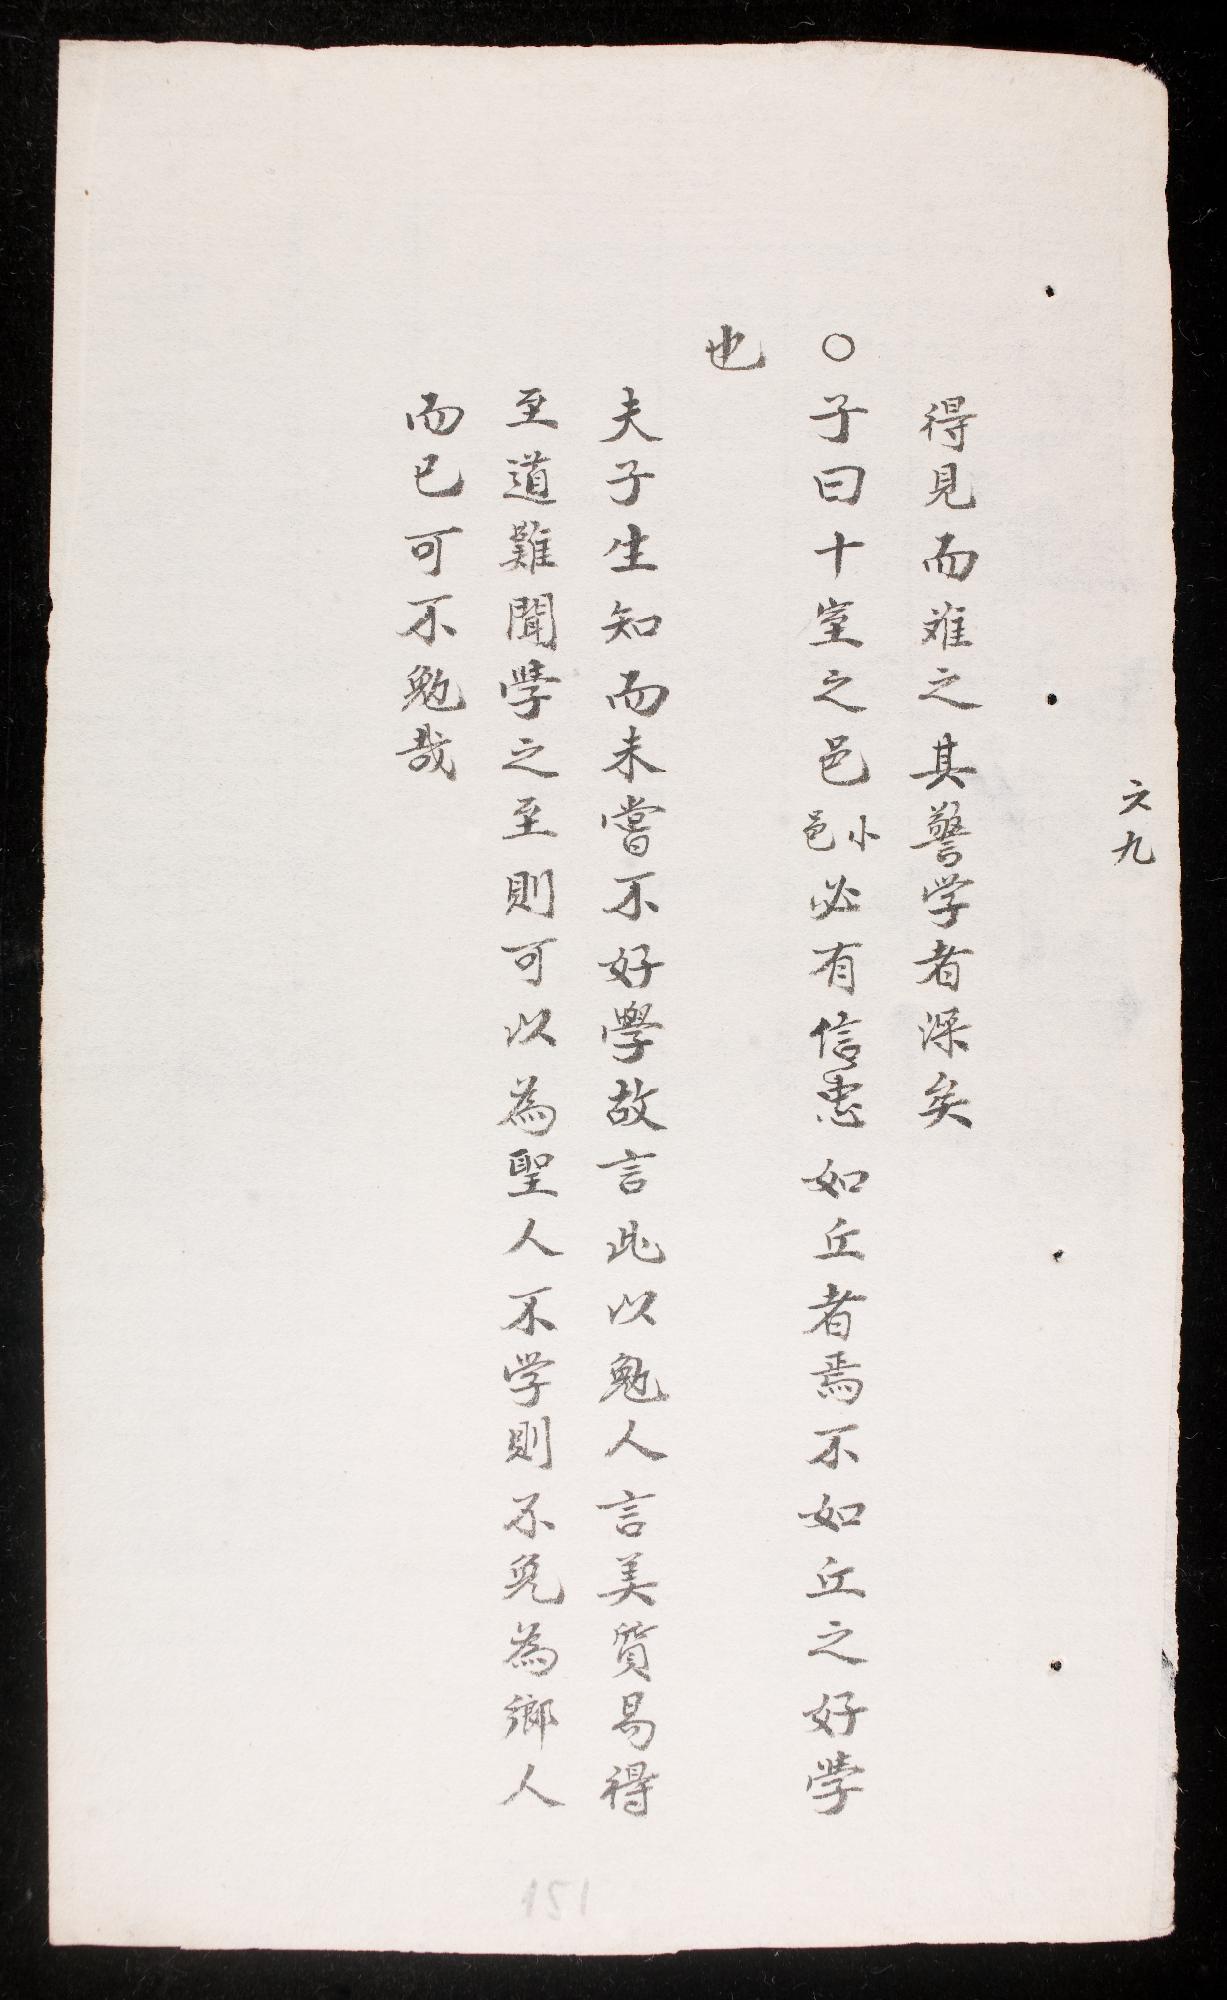 六九
得見而难之其警学者深矣
〇子曰十室之邑小邑必有信忠如丘者焉不如丘之好學
也
夫子生知而未嘗不好學故言此以勉人言美質易得
至道難聞學之至則可以為聖人不学則不免為鄉人
而已可不勉哉
151